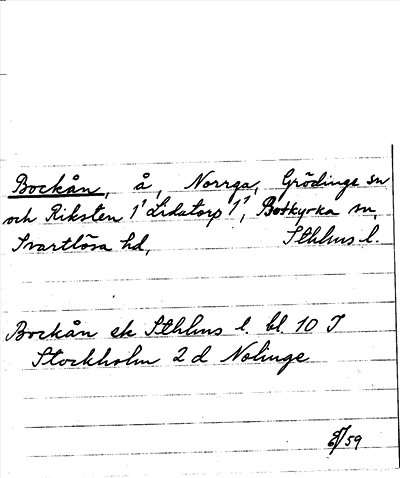 Bockån, å, Norrga, Grödinge sn
och Riksten 1' Lidatorp 1', Botkyrka sn,
Svartlösa hd, Sthlms l.
Bockån ek Sthlms l. bl. 10 J
Stockholm 2 d Nolinge
59